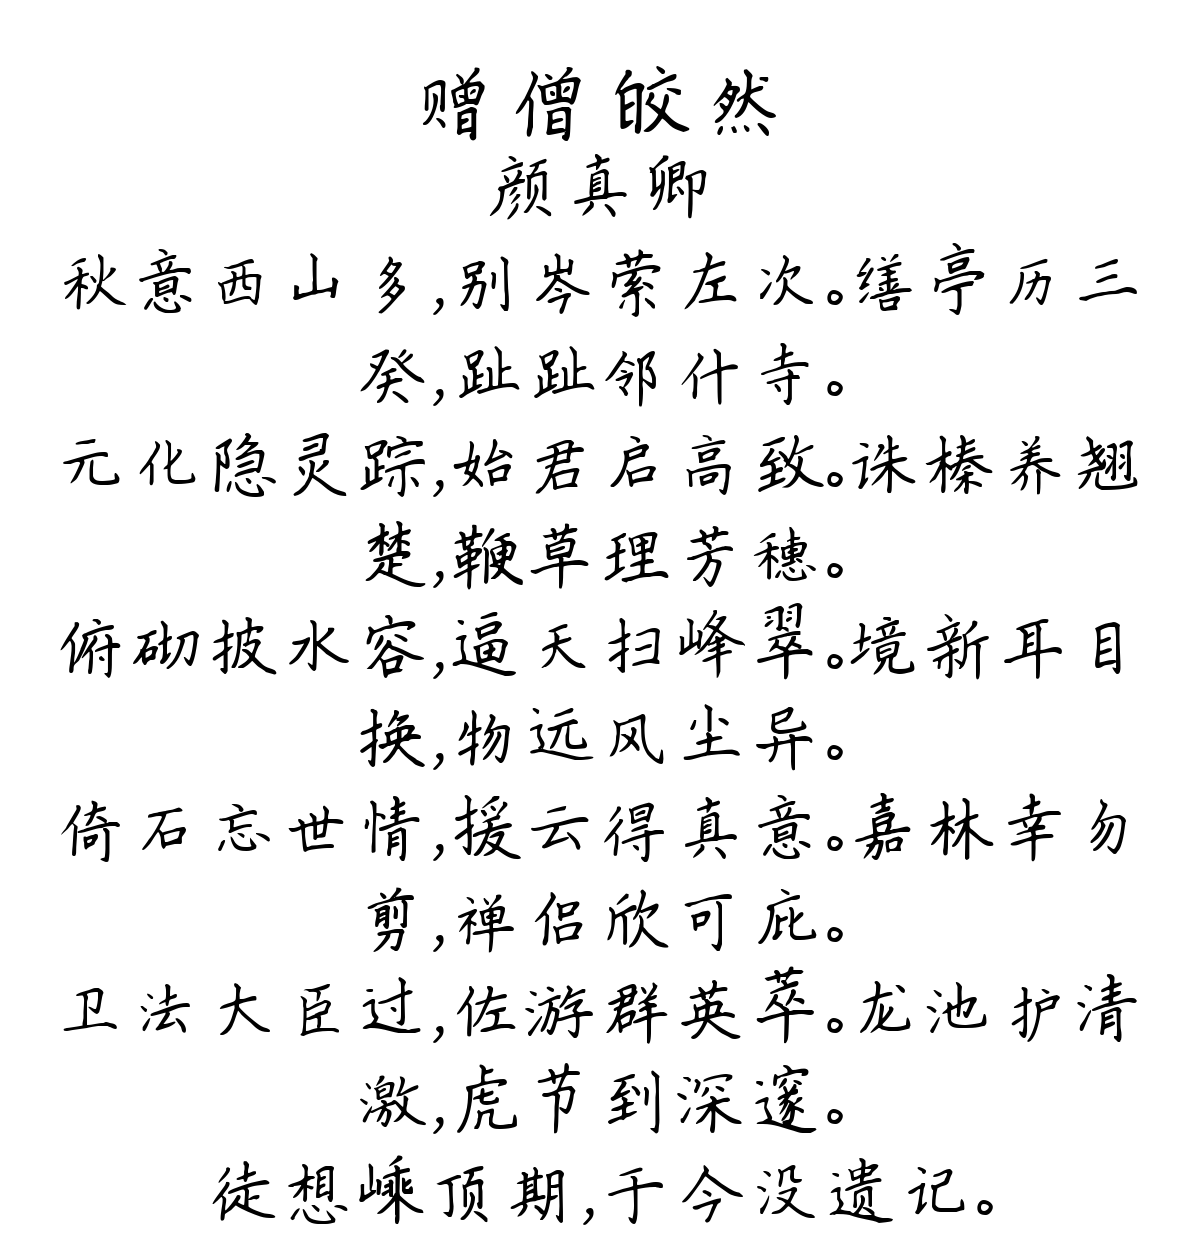 赠僧皎然
颜真卿
秋意西山多,别岑萦左次。缮亭历三
癸,趾趾邻什寺。
元化隐灵踪,始君启高致。诛榛养翘
楚,鞭草理芳穗。
俯砌披水容,逼天扫峰翠。境新耳目
换,物远风尘异。
倚石忘世情,援云得真意。嘉林幸勿
剪,禅侣欣可庇。
卫法大臣过,佐游群英萃。龙池护清
激,虎节到深邃。
徒想嵊顶期,于今没遗记。